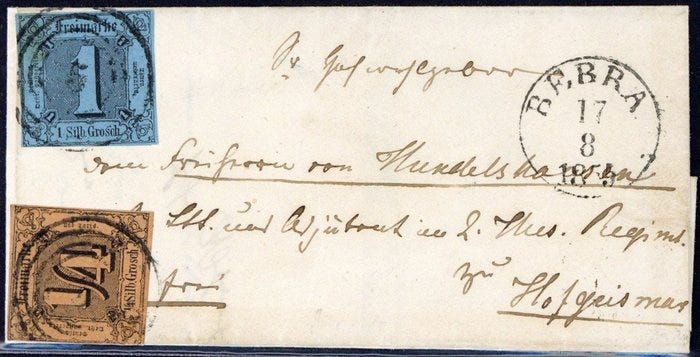 Freimarke
1
1 Silb. Grosch
BEBRA
17
8
185
Sr Hochwohlgeboren
dem Freiherrn von Hundelshausen
Lt. und Adjutant im 2. Hus. Regimt.
zu
frei
Hofgeismar
1/4
1/4 Silb. Grosch